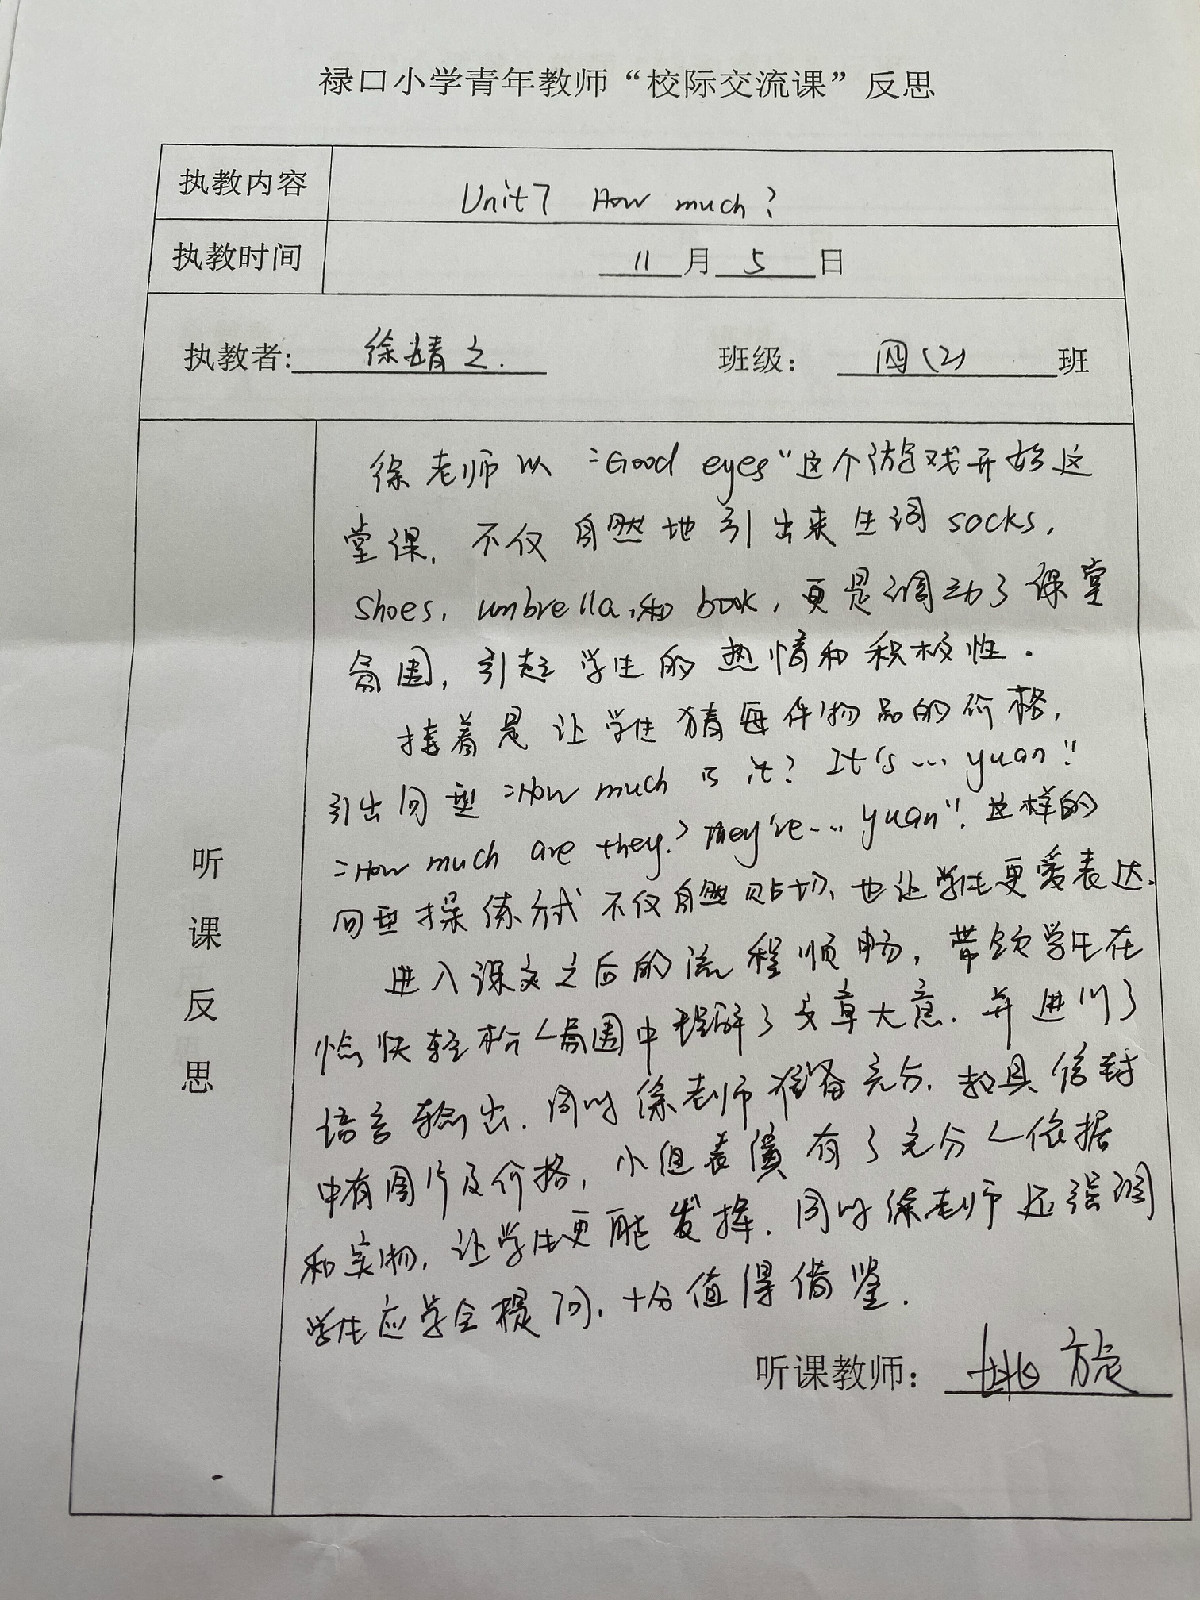 禄口小学青年教师“校际交流课”反思
执教内容 Unit7 How much?
执教时间 11 月 5 日
执教者: 徐婧之. 班级: 四(2) 班
听课反思
徐老师以“Good eyes”这个游戏开始这
堂课，不仅自然地引出来生词socks,
shoes, umbrella,和 book, 更是调动了课堂
氛围，引起学生的热情和积极性.
接着是让学生猜每件物品的价格,
引出句型“How much is it? It's … yuan”
“How much are they? They're … yuan”. 这样的
句型操练方式不仅自然贴切, 也让学生更爱表达.
进入课文之后的流程顺畅, 带领学生在
愉快轻松的氛围中理解了文章大意. 并进行了
语言输出. 同时徐老师准备充分. 教具信封
中有图片及价格, 小组表演有了充分的依据
和实物, 让学生更能发挥. 同时徐老师还强调
学生应学会提问. 十分值得借鉴.
听课教师: 姚旋